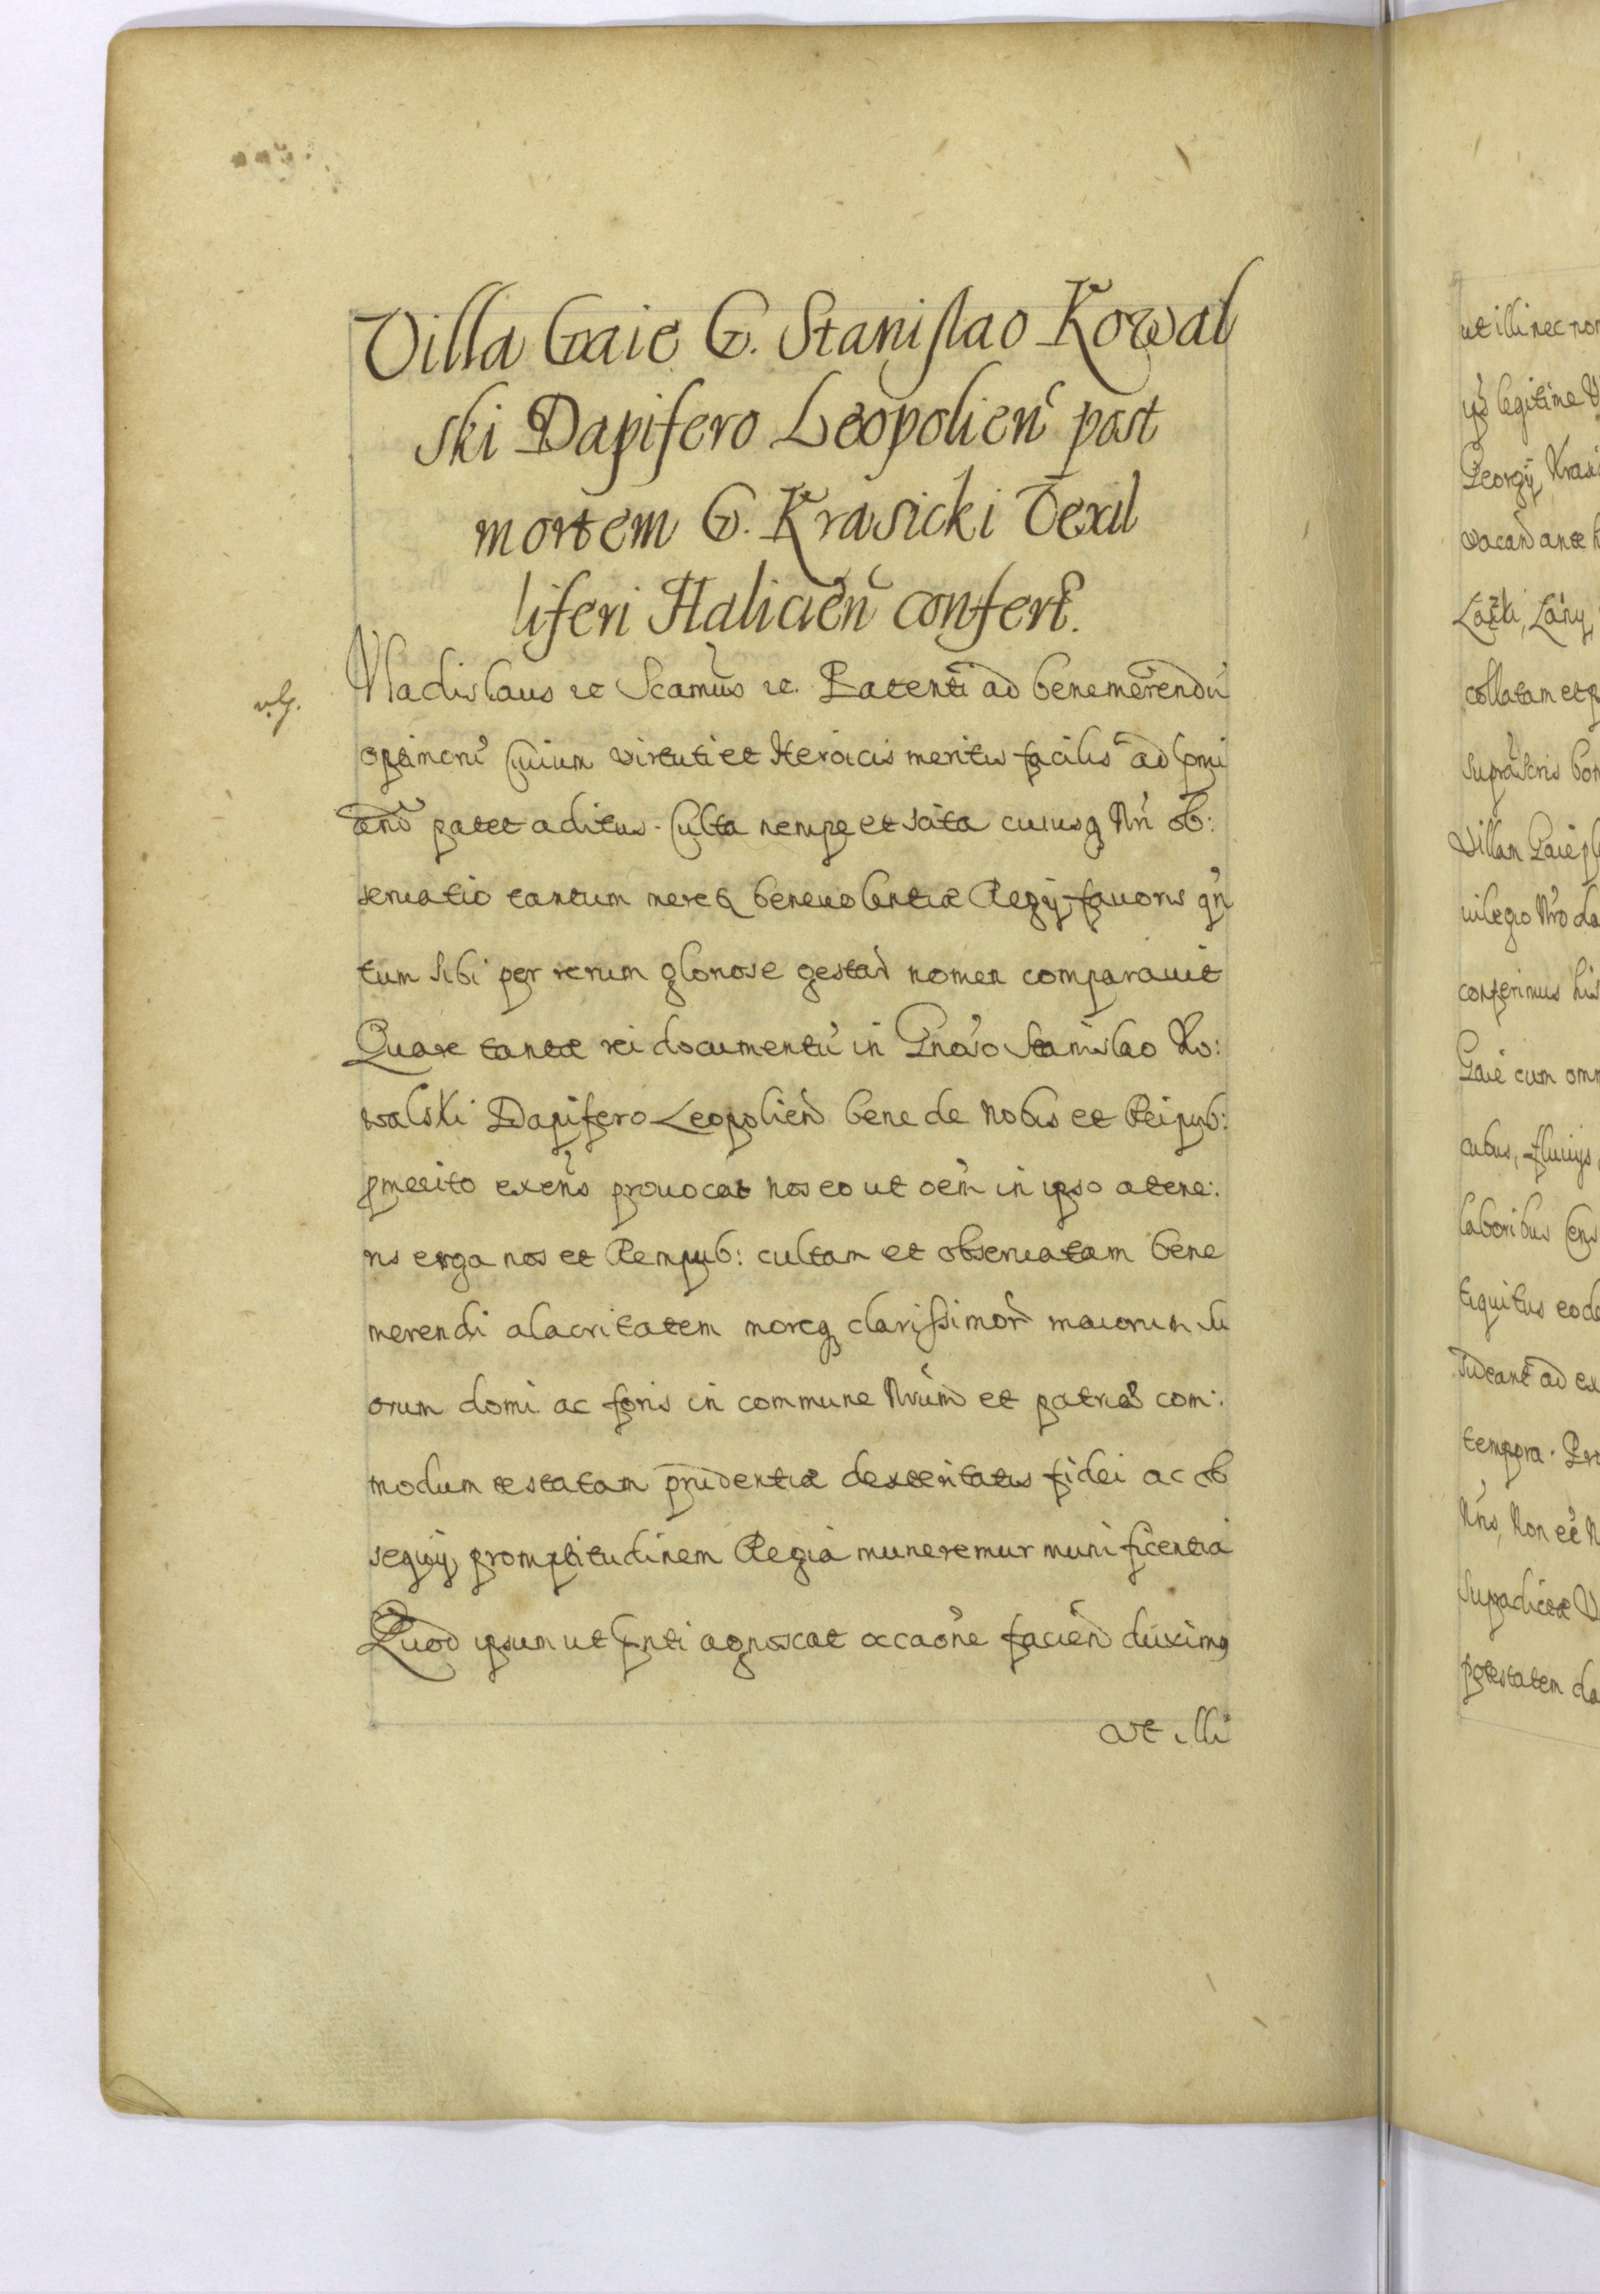 Villa Gaie G. Stanislao Kowal
ski Dapifero Leopolien̄ post
mortem G. Krasicki Vexil
liferi Halicien̄ confert̄.
Vladislaus etc Scamus etc. Patenti ad benemerendū
vlg.
optimorū Civium virtuti et Heroicis meritis facilis ad pmi
and patet aditus. Culta nempe et sata cuiusq Nri ob:
seruatio tantum meretq beneuolentiæ Regij fauoris qn
tum sibi per rerum gloriose gestar nomen comparauit
Quare tantæ rei documentū in Gnoso Stanislao Ko:
walski Dapifero Leopolien bene de Nobis et Reipub:
pmerito exens prouocat nos eo ut oem in ipso a tene:
ris erga nos et Rempub: cultam et obseruatam bene
merendi alacritatem moreq clarissimor maiorum su
orum domi ac foris in commune Nrum et patriæ com:
modum testatam prudentiæ dexteritatis fidei ac ob
sequij promptitudinem Regia muneremur munificentia
Quod ipsum ut pnti agnoscat occaone facien duximq
ut illi
ut illi nec non
ijs legitime
Georgij Krasi
vacan ante
collatam et
suprascris bon
Villam Gaie
uilegio Nro da
conferimus his
Gaie cum omn
cubus, fluuijs,
laboribus Cens
tiquitus eod
tempora. Pro
Nris, Non
supradictæ V
potestatem da